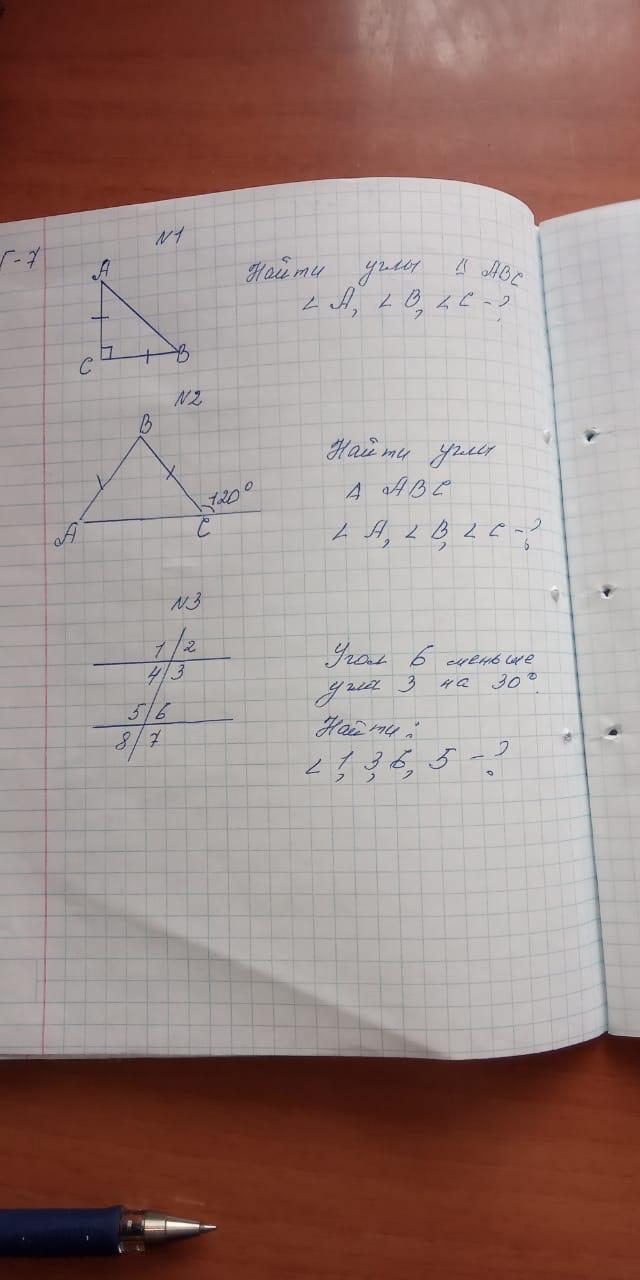 Г-7
№1
A
C
B
Найти углы Δ ABC
∠ A, ∠ B, ∠ C - ?
№2
B
A
C
120°
Найти углы
Δ ABC
∠ A, ∠ B, ∠ C - ?
№3
1 2
4 3
5 6
8 7
Угол 6 меньше
угла 3 на 30°.
Найти:
∠ 1, 3, 6, 5 - ?